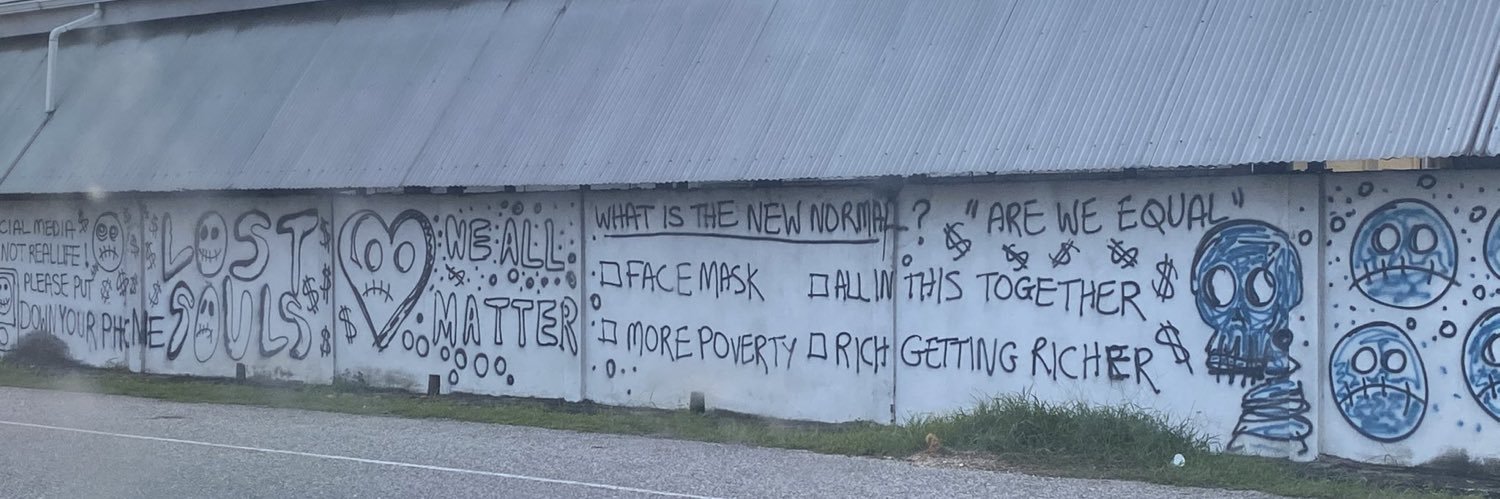 CIAL MEDIA
NOT REAL LIFE!
PLEASE PUT
DOWN YOUR PHONE
LOST
SOULS
WE ALL
MATTER
WHAT IS THE NEW NORMAL?
FACE MASK
ALL IN THIS TOGETHER
MORE POVERTY
RICH GETTING RICHER
"ARE WE EQUAL"